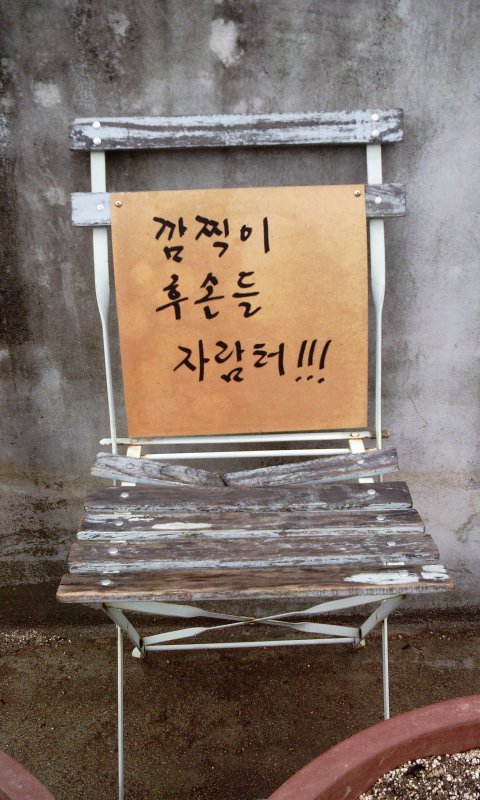 깜찍이
후손들
자람터!!!